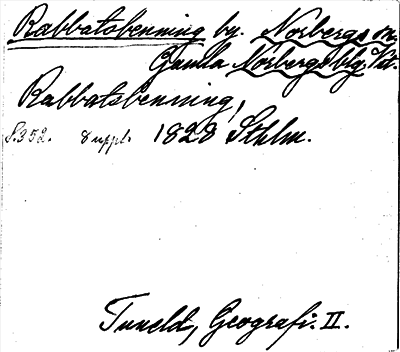 Rabbatsbenning by. Norbergs sn.
Gamla Norbergs blg. Vstm.
Rabbatsbenning,
S. 352. 8 uppl. 1828 Sthlm.
Tuneld, Geografi. II.